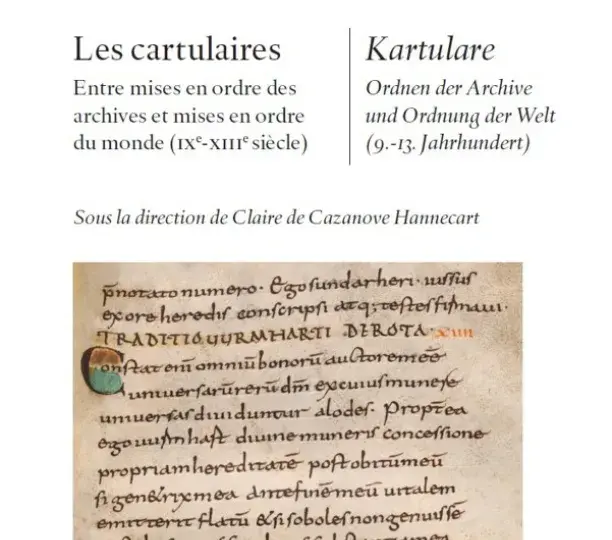 Les cartulaires
Entre mises en ordre des
archives et mises en ordre
du monde (IXᵉ-XIIIᵉ siècle)
Kartulare
Ordnen der Archive
und Ordnung der Welt
(9.-13. Jahrhundert)
Sous la direction de Claire de Cazanove Hannecart
p̄notato numero. Ego sundarheri. iussus
ex ore heredis conscripsi atq; testes firmaui.
TRADITIO UURMHARTI DE ROTA. XIIII
Constat enī omniū bonorū auctorem eē
uniuersarū rerū dm̄ ex cuius munere
uniuersas diuiduntur alodes. Propt̄ea
ego uurmhart diuine muneris concessione
propriam hereditatē post obitū meū
si genetrix mea ante finē meū uitalem
emitterit flatū & si soboles non genuissē